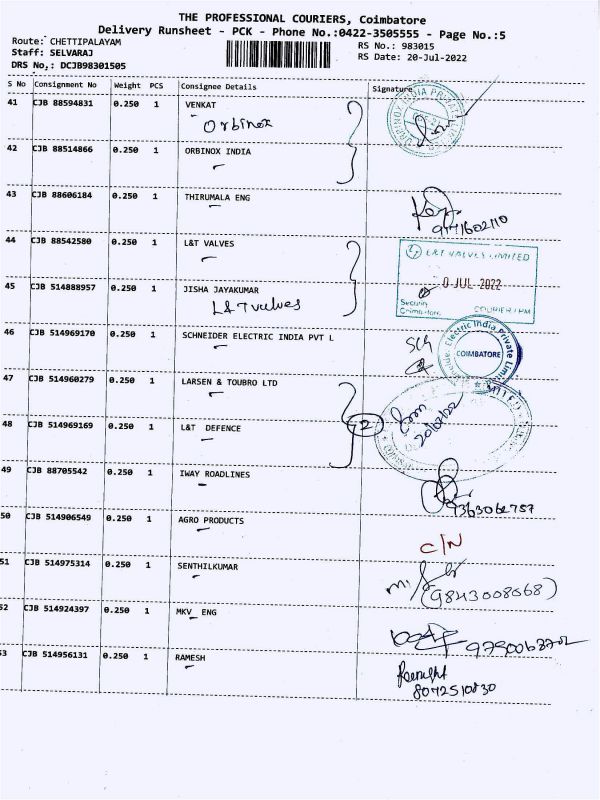 THE PROFESSIONAL COURIERS, Coimbatore
Delivery Runsheet - PCK - Phone No.:0422-3505555 - Page No.:5
Route: CHETTIPALAYAM RS No.: 983015
Staff: SELVARAJ RS Date: 20-Jul-2022
DRS No,: DCJB98301505
S No Consignment No Weight PCS Consignee Details Signature
41 CJB 88594831 0.250 1 VENKAT
Orbinox
42 CJB 88514866 0.250 1 ORBINOX INDIA
43 CJB 88606184 0.250 1 THIRUMALA ENG
9171602110
44 CJB 88542580 0.250 1 L&T VALVES
L&T VALVES LIMITED
0 JUL 2022
Security
Coimbatore. COURIER / PM
45 CJB 514888957 0.250 1 JISHA JAYAKUMAR
L&T valves
46 CJB 514969170 0.250 1 SCHNEIDER ELECTRIC INDIA PVT L
Electric India Private Limi
COIMBATORE
47 CJB 514960279 0.250 1 LARSEN & TOUBRO LTD
2
20/07/22
48 CJB 514969169 0.250 1 L&T DEFENCE
49 CJB 88705542 0.250 1 IWAY ROADLINES
9363062757
50 CJB 514906549 0.250 1 AGRO PRODUCTS
C/N
51 CJB 514975314 0.250 1 SENTHILKUMAR
(9843008068)
52 CJB 514924397 0.250 1 MKV ENG
53 CJB 514956131 0.250 1 RAMESH
8072510830